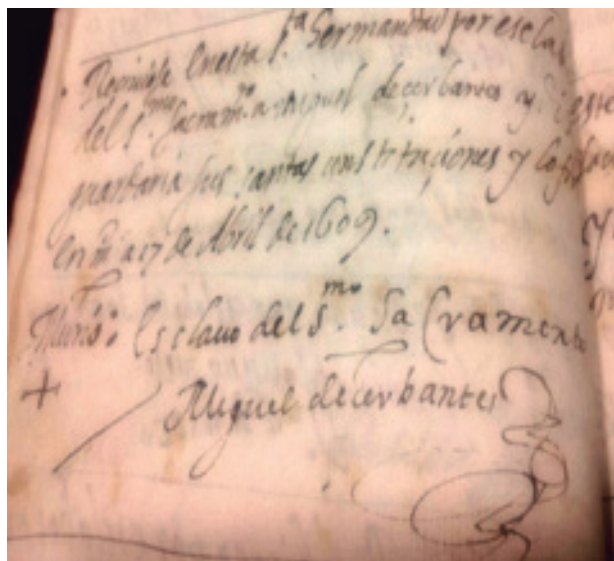 Recibiose en esta s.ta Hermandad por escla
del s.mo sacram.to a miguel de cerbantes y
guardaria sus santas constituciones y lo
en m.d a 17 de Abril de 1609.
Murió: Esclavo del s.mo Sacramento
Miguel de cerbantes